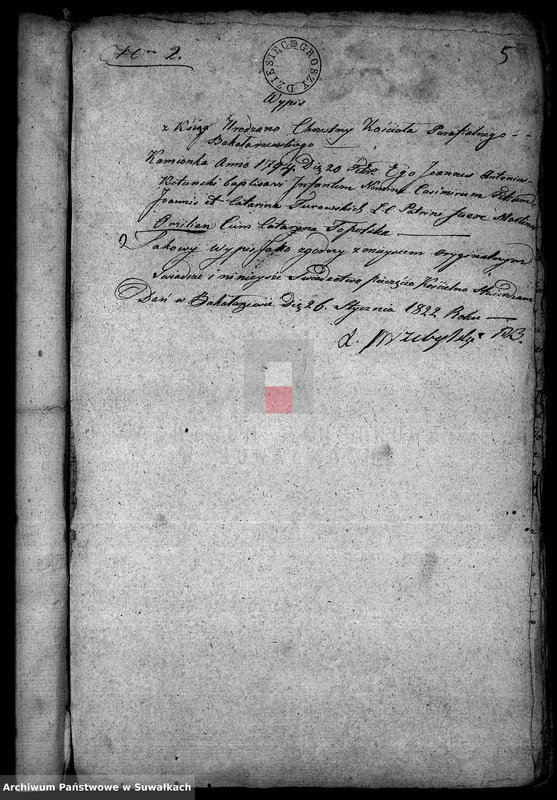 N 2.
5
DZIESIĘĆ GROSZY
Wypis
z Xsiąg Urodzano Chrestny Kościoła Parafialnego
Bakałarzewskiego
Kamionka Anno 1794 Die 20 Febr Ego Joannes Antonius
baptisavi Infantem Nomine Casimirum Filium
Joannis et Catarina Turowskich L. C. Patrini fuere Martinus
Omilian Cum Catarzyna Topolska
Takowy Wypis jako zgodny z oryginalnym
Świadczę i niniejsze Świadectwo pieczęcio Kościelno
Dań w Bakałarzewie Die 26. Stycznia 1822 Roku
Archiwum Państwowe w Suwałkach